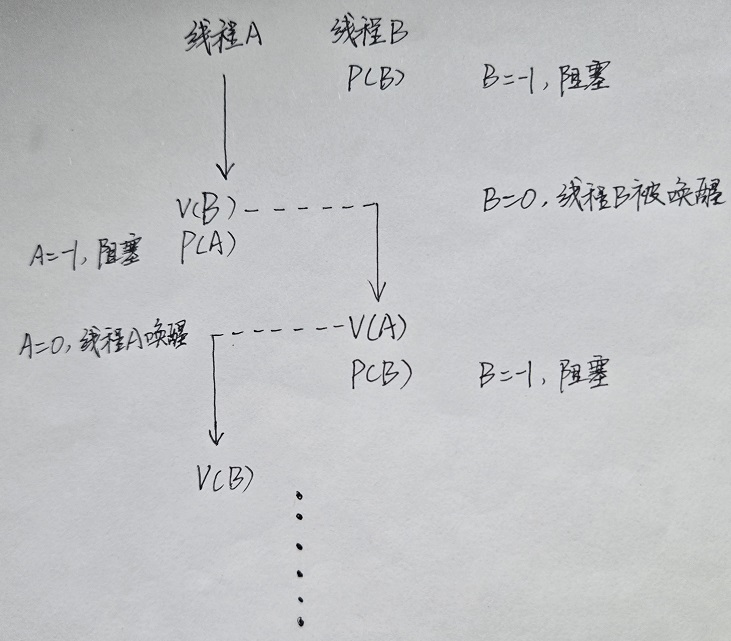 线程A 线程B
P(B) B=-1,阻塞
V(B) B=0,线程B被唤醒
A=-1,阻塞 P(A)
A=0,线程A唤醒 V(A)
P(B) B=-1,阻塞
V(B)